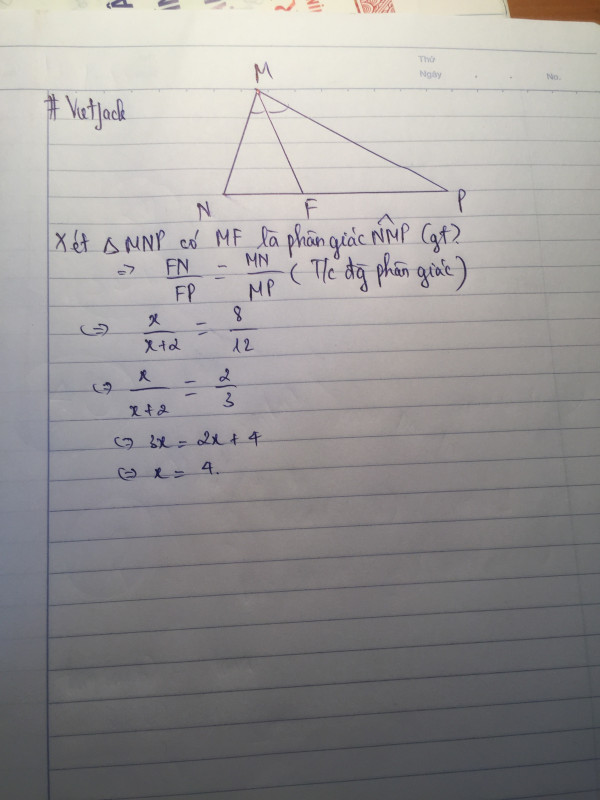 Thứ
Ngày . . No.
# Vietjack
M
N F P
Xét Δ MNP có MF là phân giác NMP (gt)
=> FN/FP = MN/MP ( T/c đg phân giác )
<=> x/x+2 = 8/12
<=> x/x+2 = 2/3
<=> 3x = 2x + 4
<=> x = 4.